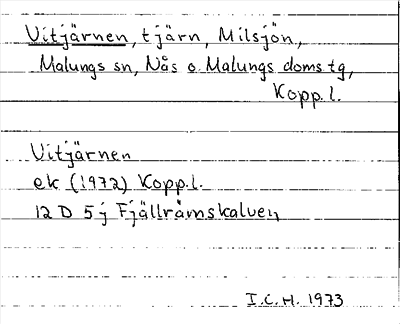 Vitjärnen, tjärn, Milsjön,
Malungs sn, Nås o. Malungs doms. tg,
Kopp. l.
Vitjärnen
ek (1972) Kopp. l.
12 D 5 j Fjällråmskalven
I.C.H. 1973